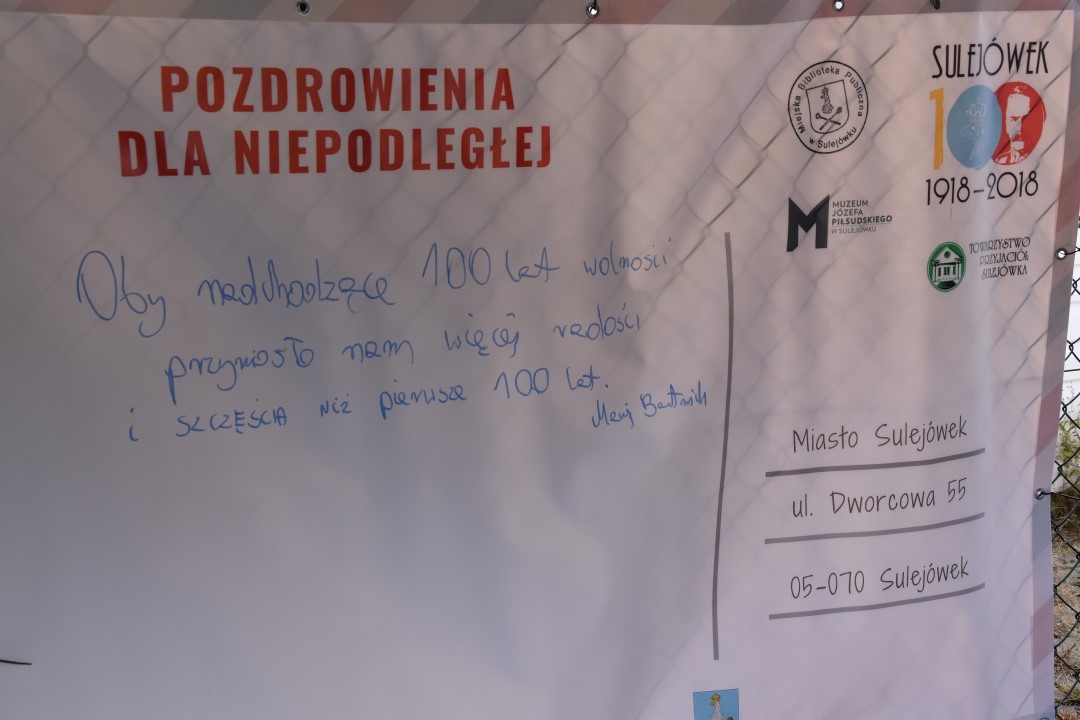 POZDROWIENIA
DLA NIEPODLEGŁEJ
Oby nadchodzące 100 lat wolności
przyniosło nam więcej radości
i szczęścia niż pierwsze 100 lat.
Miejska Biblioteka Publiczna
w Sulejówku
SULEJÓWEK
100
1918-2018
M MUZEUM
JÓZEFA
PIŁSUDSKIEGO
W SULEJÓWKU
TOWARZYSTWO
PRZYJACIÓŁ
SULEJÓWKA
Miasto Sulejówek
ul. Dworcowa 55
05-070 Sulejówek